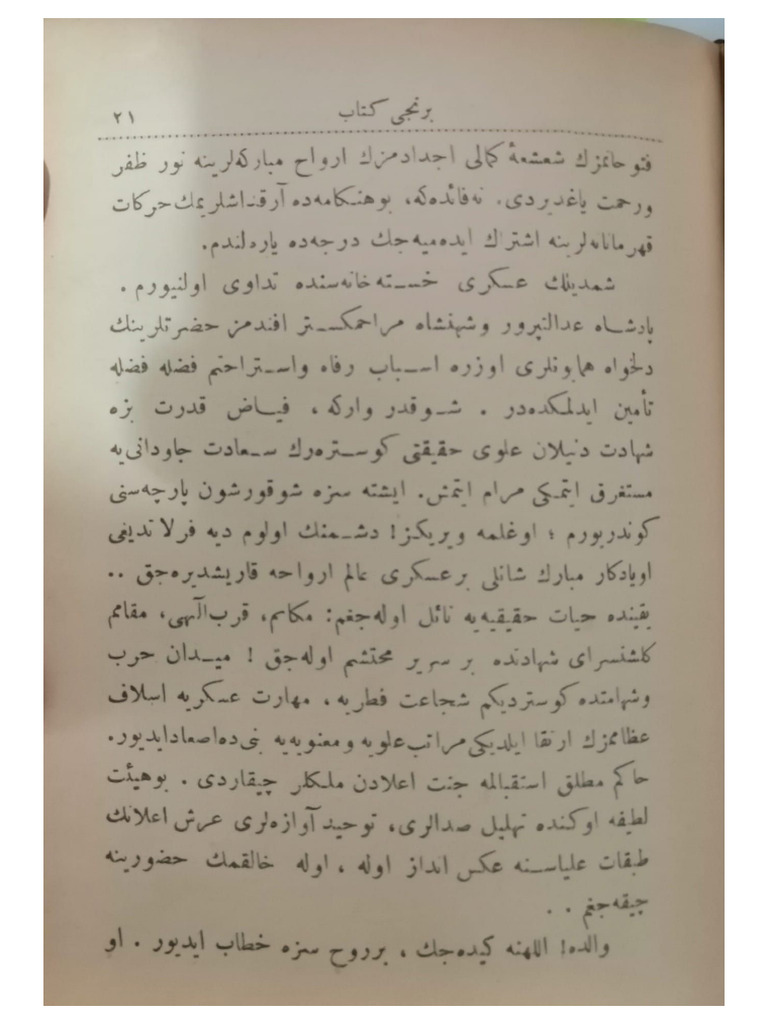 برنجی كتاب ٢١
فتوحاتمزك شعشعهٔ كمالی اجدادمزك ارواح مباركه‌لرینه نور ظفر
ورحمت یاغدیردی. نه‌فائده‌كه، بوهنكامه‌ده آرقداشلریمك حركات
قهرمانانه‌لرینه اشتراك ایده‌میه‌جك درجه‌ده یاره‌لندم.
شمدینك عسكری خسته‌خانه‌سنده تداوی اولنیورم.
پادشاه عدالتپرور وشهنشاه مراحمكستر افندمز حضرتلرینك
دلخواه همایونلری اوزره اسباب رفاه واستراحتم فضله فضله
تأمین ایدلمكده‌در. شوقدر واركه، فیاض قدرت بزه
شهادت دنیلان علوی حقیقتی كوستره‌رك سعادت جاودانی‌یه
مستغرق ایتمكی مرام ایتمش. ایشته سزه شوقورشون پارچه‌سنی
كوندریورم؛ اوغلمه ویریكز! دشمنك اولوم دیه فرلاتدیغی
اویادكار مبارك شانلی برعسكری عالم ارواحه قاریشدیره‌جق ..
یقینده حیات حقیقیه‌یه نائل اوله‌جغم: مكانم، قرب‌الهی، مقامم
كلشنسرای شهادنده بر سریر محتشم اوله‌جق! میدان حرب
وشهامتده كوستردیكم شجاعت فطریه، مهارت عسكریه اسلاف
عظاممزك ارتقا ایلدیكی مراتب علویه ومعنویه‌یه بنی‌ده‌اصعادایدیور.
حاكم مطلق استقبالمه جنت اعلادن ملكلر چیقاردی. بوهیئت
لطیفه اوكنده تهلیل صدالری، توحید آوازه‌لری عرش اعلانك
طبقات علیاسنه عكس انداز اوله، اوله خالقمك حضورینه
چیقه‌جغم..
والده! اللهنه كیده‌جك، برروح سزه خطاب ایدیور. او